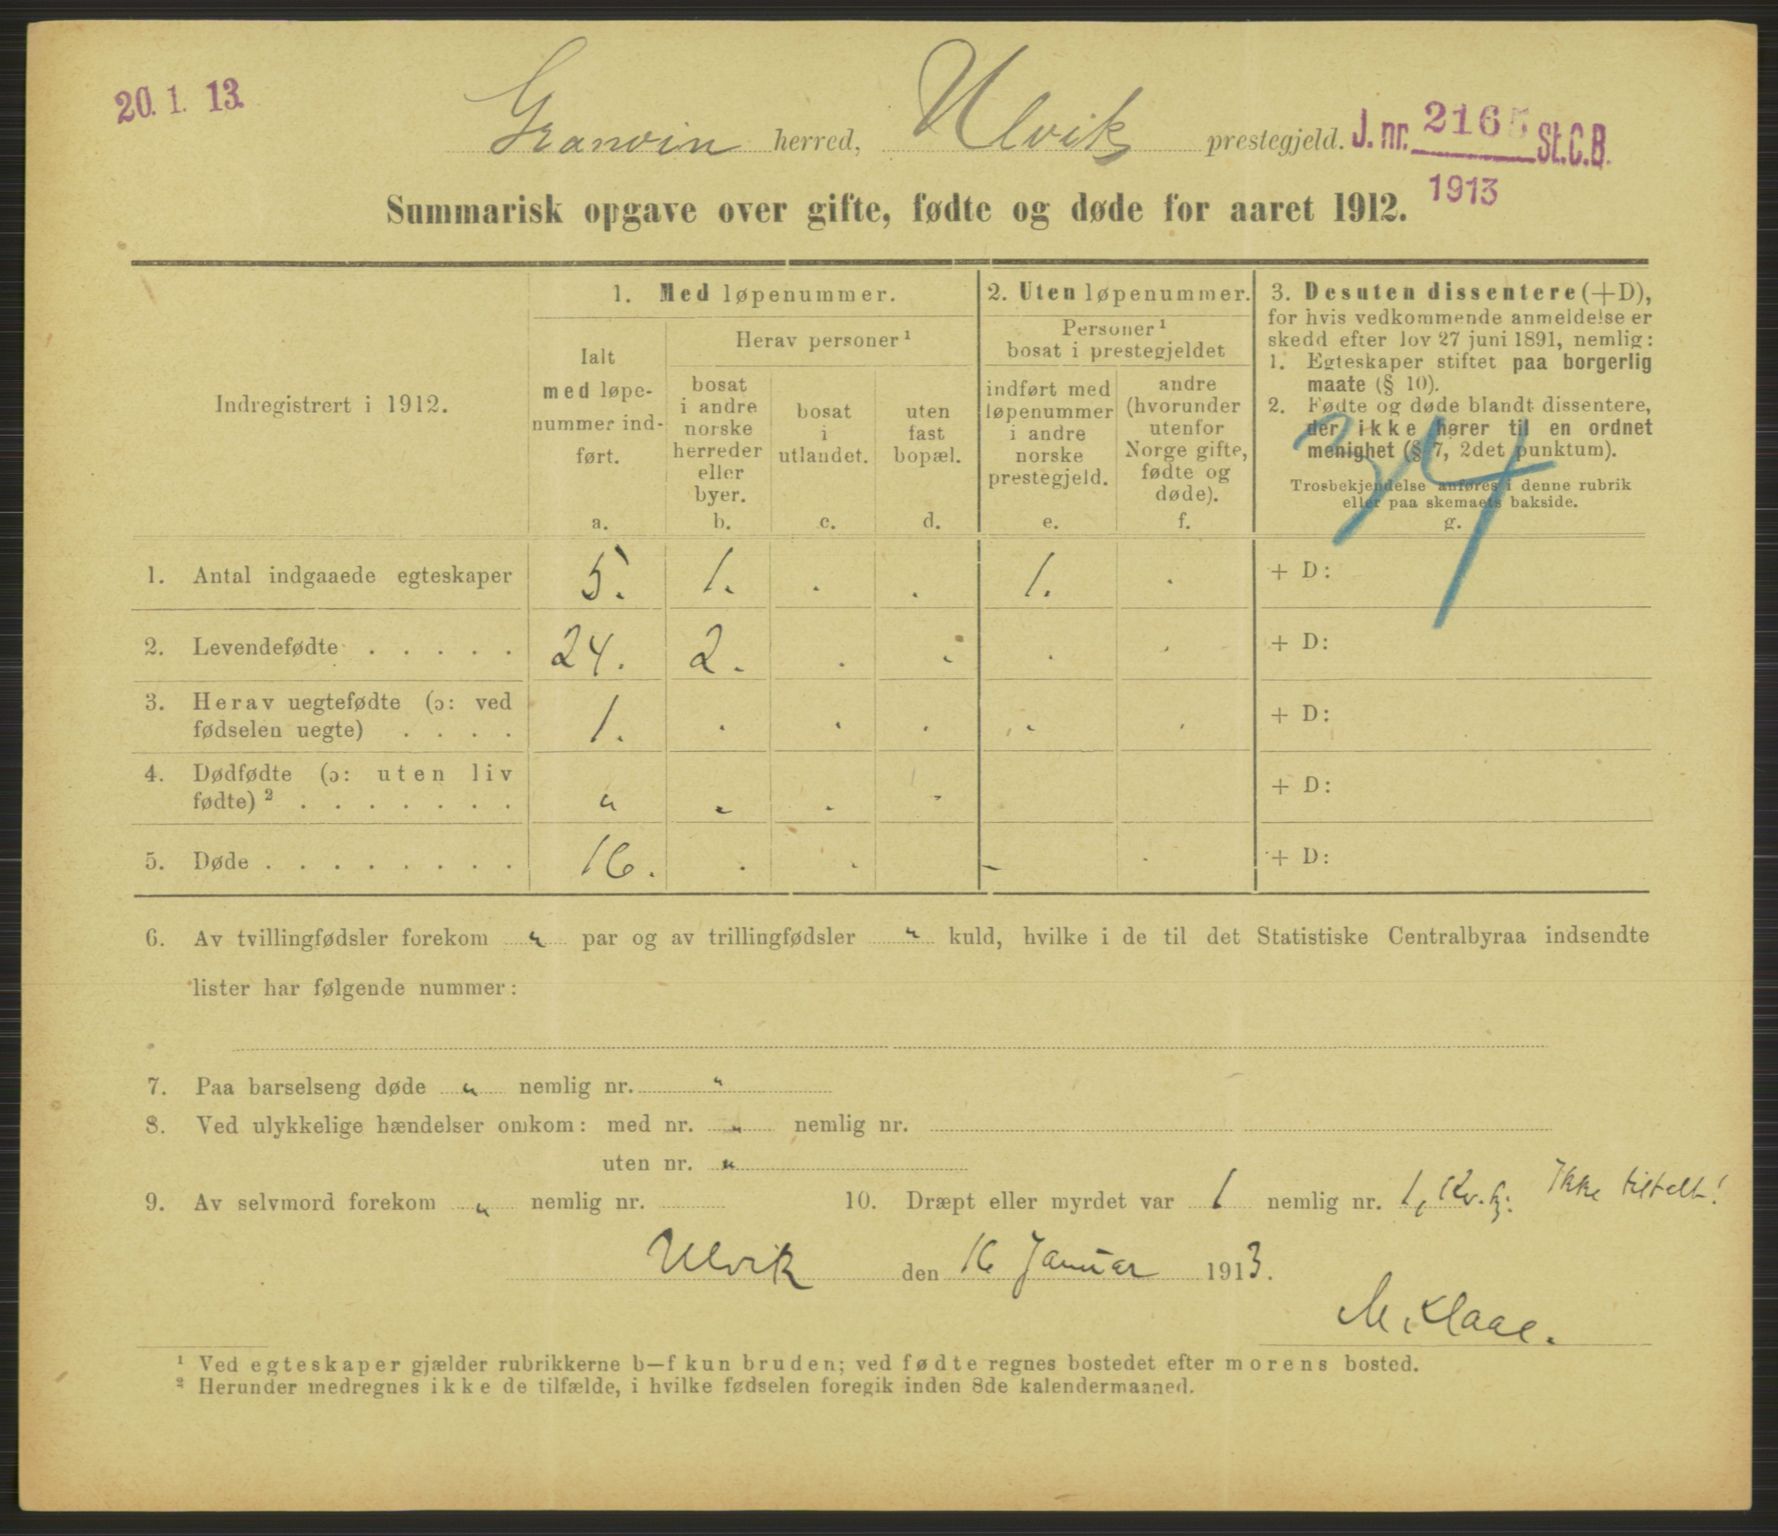 20. 1. 13.
Granvin herred, Ulvik prestegjeld. J. nr. 2165 St.C.B.
1913
Summarisk opgave over gifte, fødte og døde for aaret 1912.
Indregistrert i 1912.
1. Med løpenummer.
Ialt
med løpe-
nummer ind-
ført.
a.
Herav personer ¹
bosat
i andre
norske
herreder
eller
byer.
b.
bosat
i
utlandet.
c.
uten
fast
bopæl.
d.
2. Uten løpenummer.
Personer ¹
bosat i prestegjeldet
indført med
løpenummer
i andre
norske
prestegjeld.
e.
andre
(hvorunder
utenfor
Norge gifte,
fødte og
døde).
f.
3. Desuten dissentere (+D),
for hvis vedkommende anmeldelse er
skedd efter lov 27 juni 1891, nemlig:
1. Egteskaper stiftet paa borgerlig
maate (§ 10).
2. Fødte og døde blandt dissentere,
der ikke hører til en ordnet
menighet (§ 7, 2det punktum).
Trosbekjendelse anføres i denne rubrik
eller paa skemaets bakside.
g.
1. Antal indgaaede egteskaper 5. 1. . . 1. . + D:
2. Levendefødte . . . . . 24. 2. . . . . + D:
3. Herav uegtefødte (ɔ: ved
fødselen uegte) . . . . 1. . . . . . + D:
4. Dødfødte (ɔ: uten liv
fødte) ² . . . . . . . " . . . + D:
5. Døde . . . . . . . . 16. . . - . + D:
6. Av tvillingfødsler forekom " par og av trillingfødsler " kuld, hvilke i de til det Statistiske Centralbyraa indsendte
lister har følgende nummer:
7. Paa barselseng døde " nemlig nr. "
8. Ved ulykkelige hændelser omkom: med nr. " nemlig nr.
uten nr. "
9. Av selvmord forekom " nemlig nr. 10. Dræpt eller myrdet var 1 nemlig nr. 1, Kv.kj: Ikke tiltalt!
Ulvik den 16 Januar 1913.
¹ Ved egteskaper gjælder rubrikkerne b—f kun bruden; ved fødte regnes bostedet efter morens bosted.
² Herunder medregnes ikke de tilfælde, i hvilke fødselen foregik inden 8de kalendermaaned.